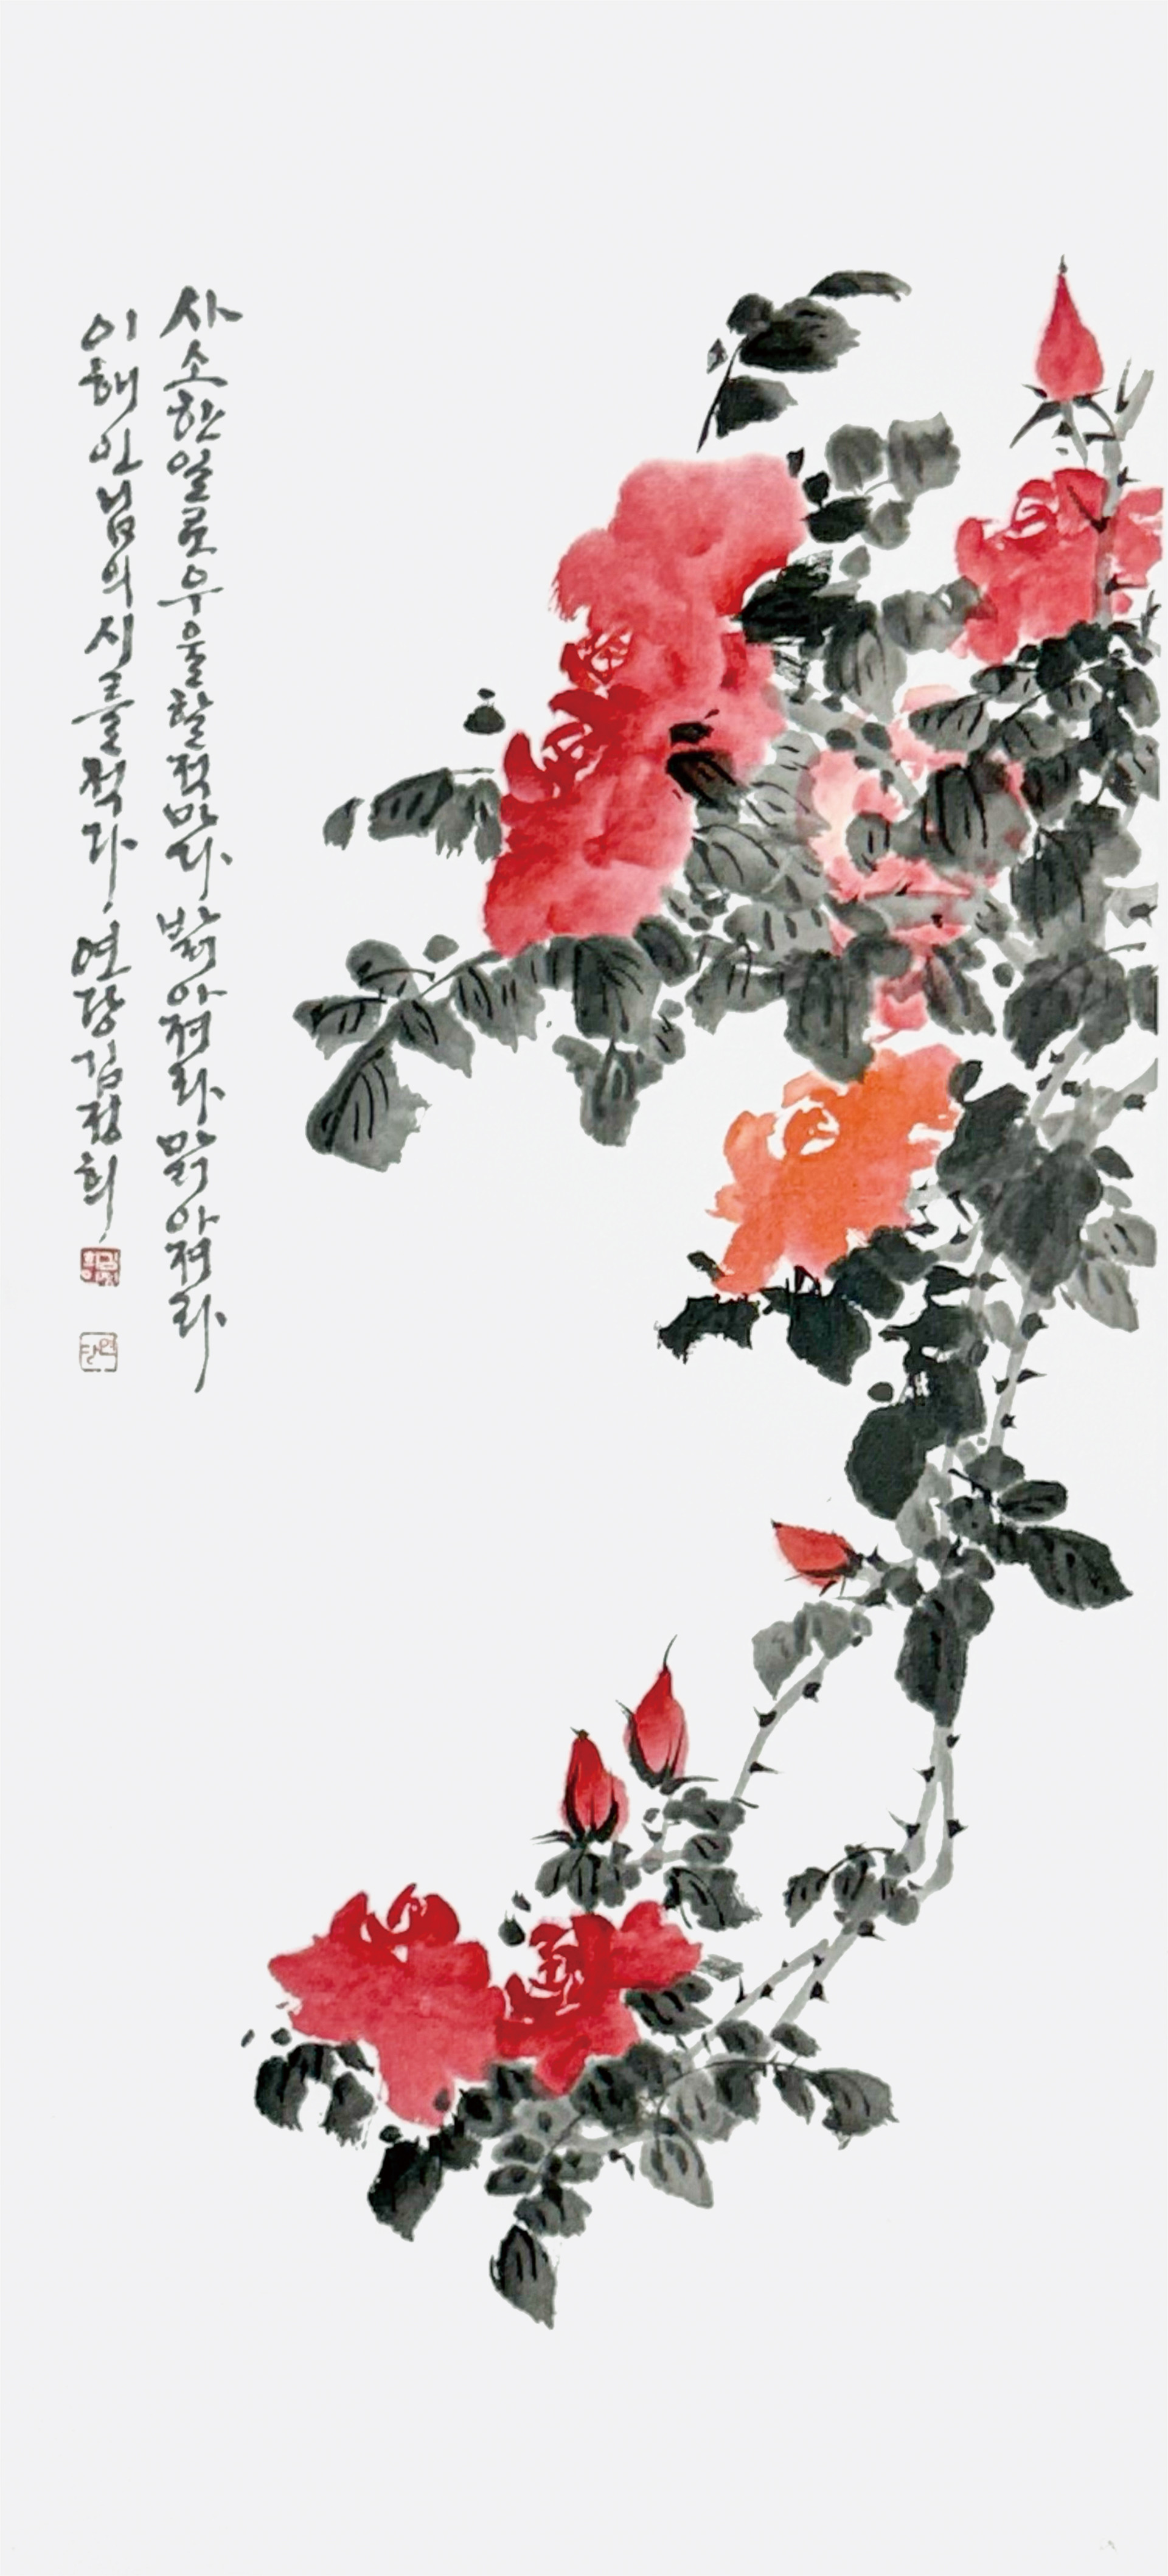 사소한 일로 우울할 적마다 밝아져라 맑아져라
이해인님의 시를 적다 연당 김정희